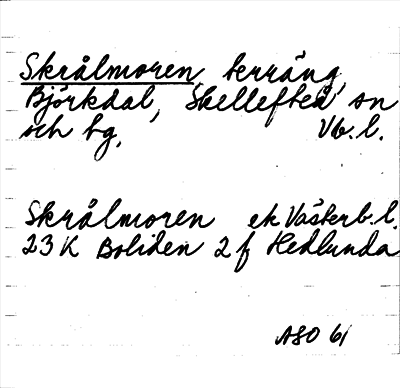 Skrålmoren, terräng,
Björkdal, Skellefteå sn
och tg, Vb.l.
Skrålmoren ek Västerb.l.
23 K Boliden 2 f Hedlunda
ASO 61